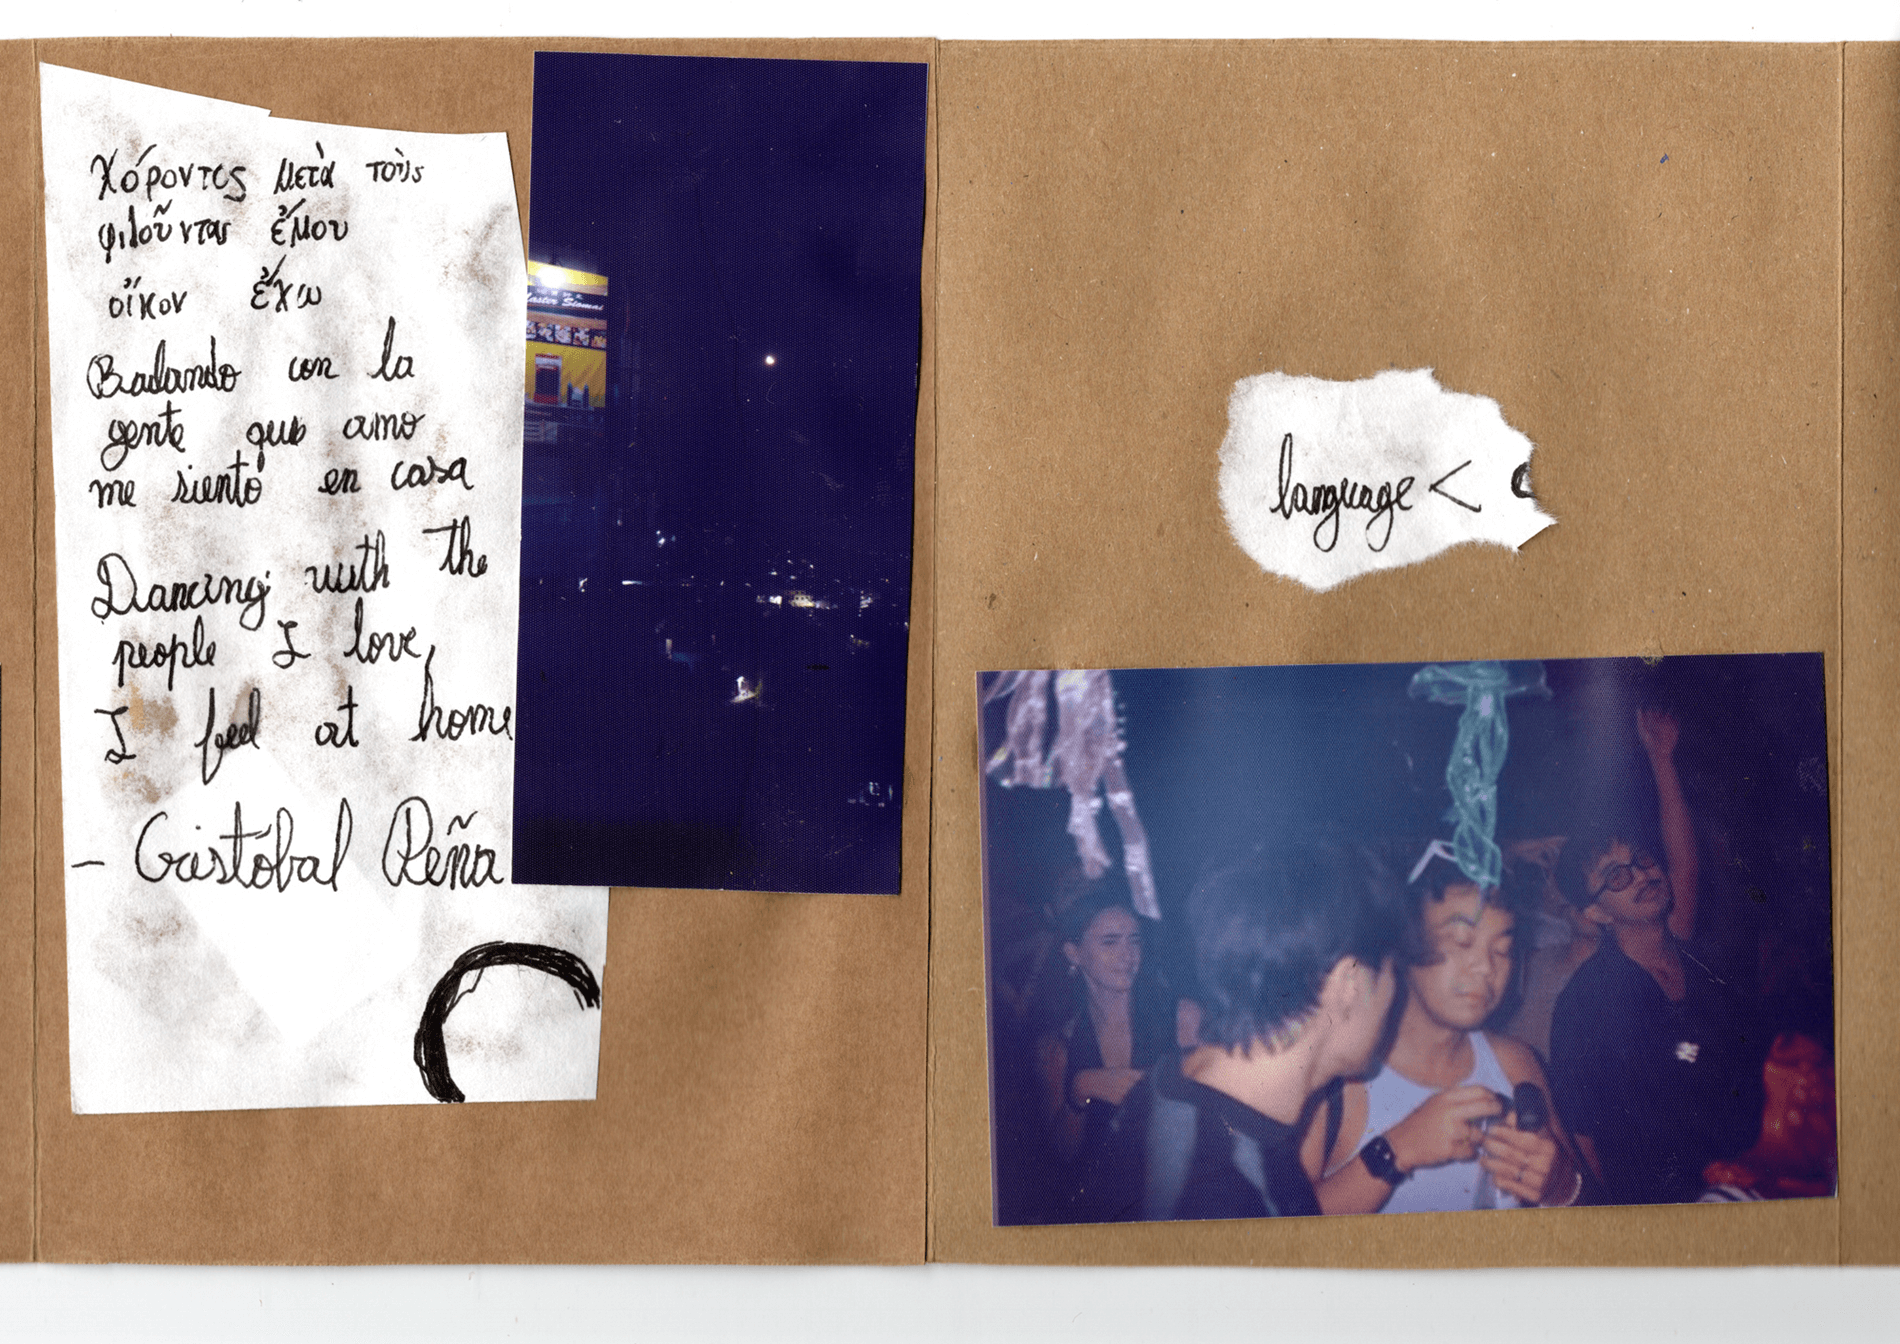 χόροντες μετὰ τοὺς
φιλοῦντας ἔμου
οἴκον ἔχω
Bailando con la
gente que amo
me siento en casa
Dancing with the
people I love,
I feel at home
– Cristóbal Peña
Master Siomai
language <